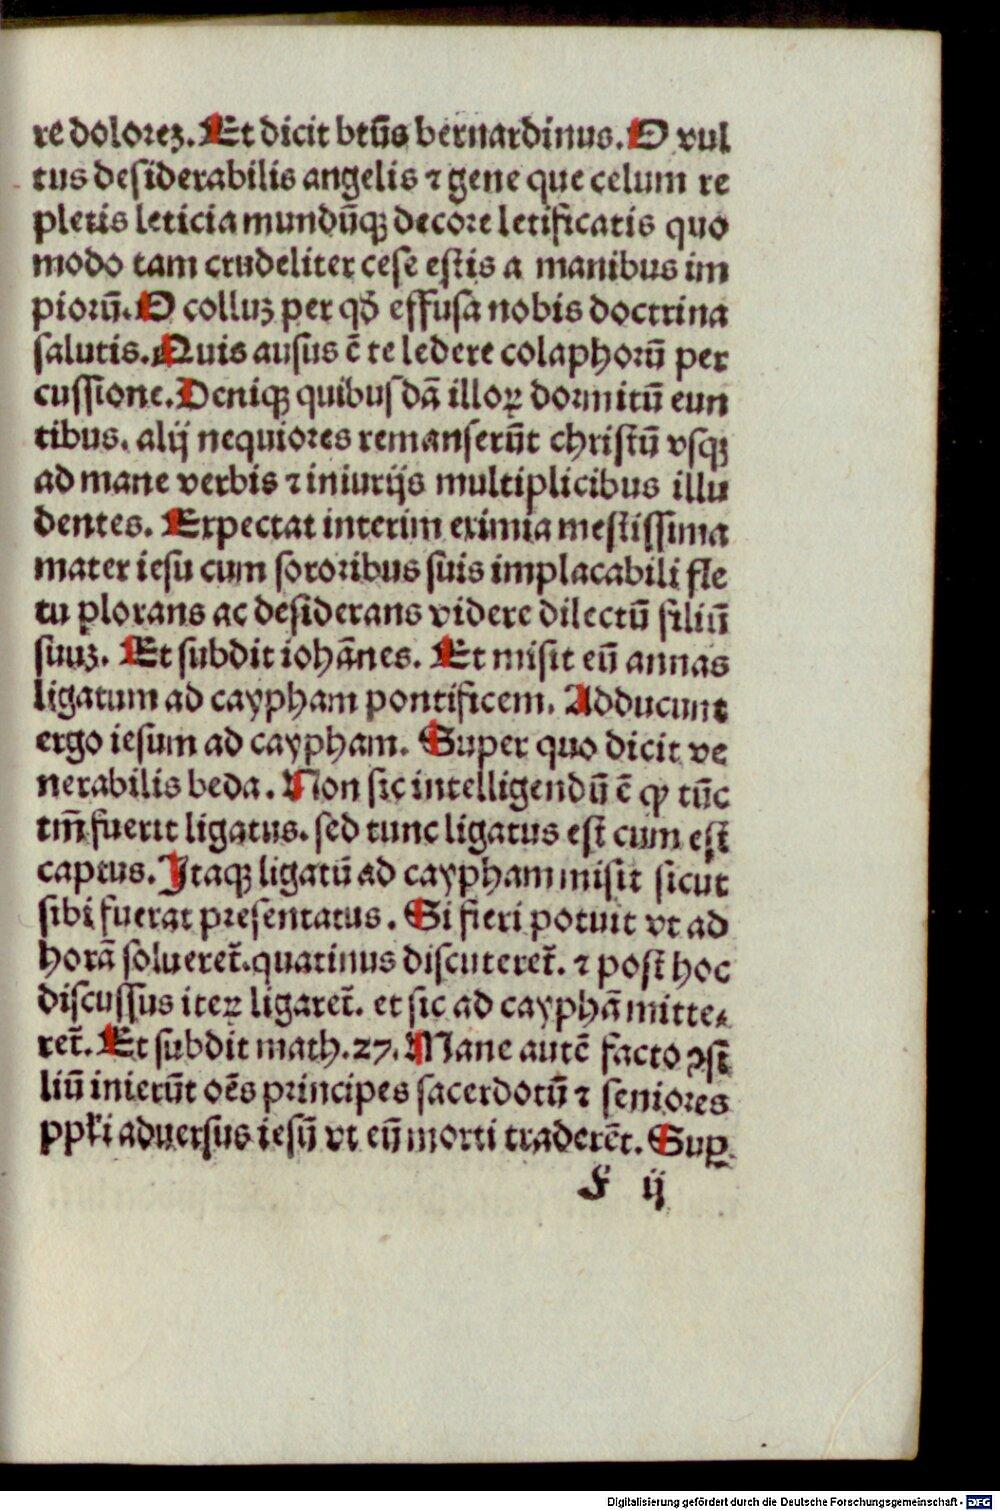 rē dolorez. Et dicit btūs bernardinus. O vul
tus desiderabilis angelis ⁊ gene que celum re
pletis leticia mundūqꝫ decore letificatis quo
modo tam crudeliter cese estis a manibus im
piorū. O colluꝫ per qđ effusa nobis doctrina
salutis. Quis ausus ē te ledere colaphorū per
cussione. Deniqꝫ quibusdā illoꝝ dormitū eun
tibus. alij nequiores remanserūt christū vsqꝫ
ad mane verbis ⁊ iniurijs multiplicibus illu
dentes. Expectat interim eximia mestissima
mater iesu cum sororibus suis implacabili fle
tu plorans ac desiderans videre dilectū filiū
suuꝫ. Et subdit iohānes. Et misit eū annas
ligatum ad caypham pontificem. Adducunt
ergo iesum ad caypham. Super quo dicit ve
nerabilis beda. Non sic intelligendū ē ꝙ tūc
tm̄ fuerit ligatus. sed tunc ligatus est cum est
captus. Itaqꝫ ligatū ad caypham misit sicut
sibi fuerat presentatus. Si fieri potuit vt ad
horā soluereť. quatinus discutereť. ⁊ post hoc
discussus iteꝝ ligareť. et sic ad cayphā mitte⸗
reť. Et subdit math. 27. Mane autē facto ↄsi
liū inierūt oēs principes sacerdotū ⁊ seniores
ppłi aduersus iesū vt eū morti traderēt. Suꝑ
F ij
Digitalisierung gefördert durch die Deutsche Forschungsgemeinschaft - DFG